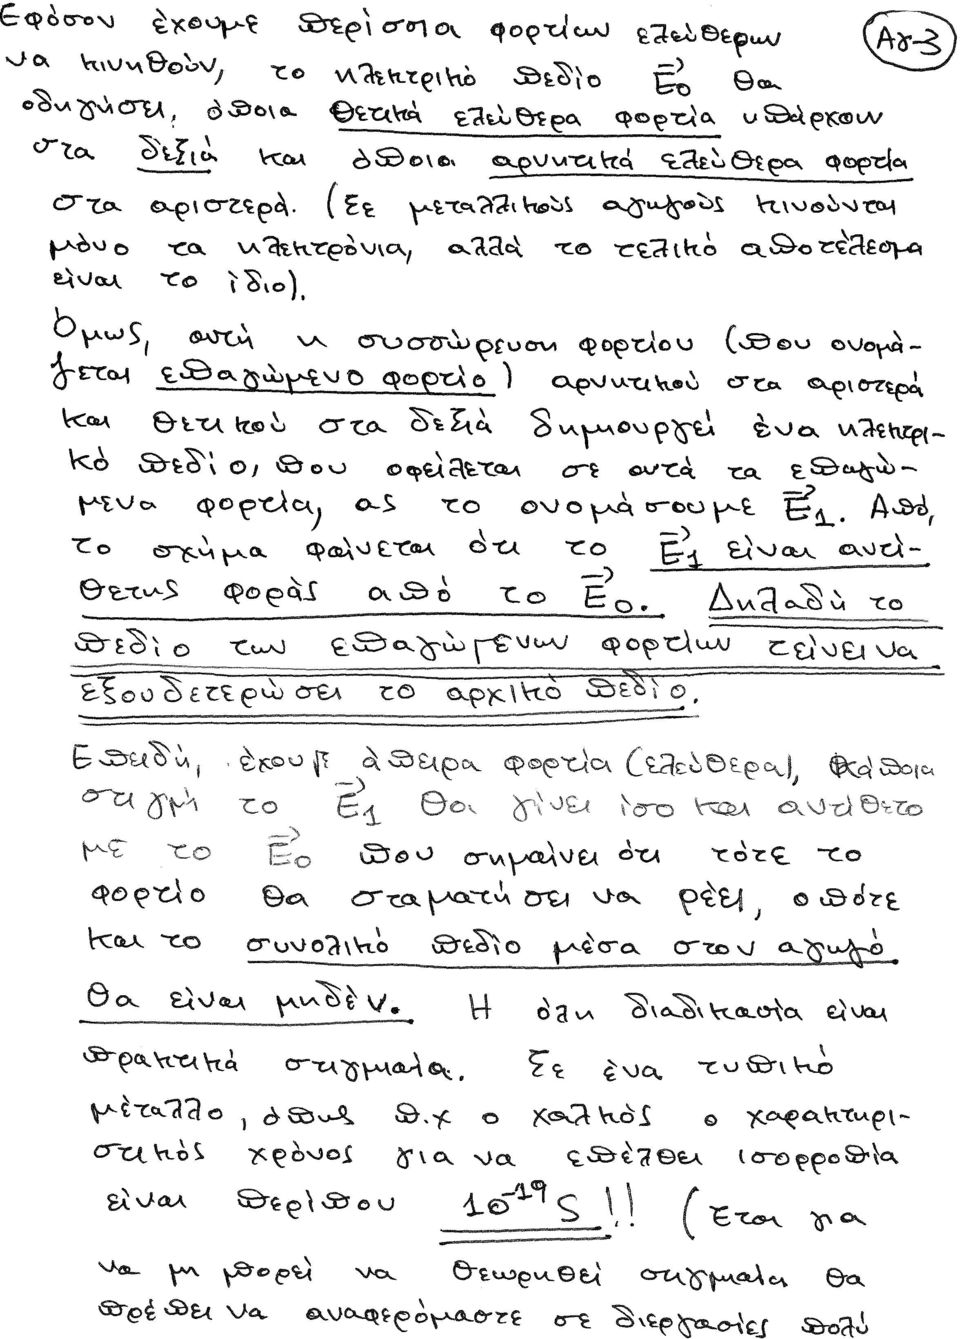 Εφόσον έχουμε περίσσια φορτίων ελεύθερων
Αγ-3
να κινηθούν, το ηλεκτρικό πεδίο E⃗₀ θα
οδηγήσει, όποια θετικά ελεύθερα φορτία υπάρχουν
στα δεξιά και όποια αρνητικά ελεύθερα φορτία
στα αριστερά. (Σε μεταλλικούς αγωγούς κινούνται
μόνο τα ηλεκτρόνια, αλλά το τελικό αποτέλεσμα
είναι το ίδιο).
Όμως, αυτή η συσσώρευση φορτίου (που ονομά-
ζεται επαγώμενο φορτίο) αρνητικού στα αριστερά
και θετικού στα δεξιά δημιουργεί ένα ηλεκτρι-
κό πεδίο, που οφείλεται σε αυτά τα επαγώ-
μενα φορτία, ας το ονομάσουμε E⃗₁. Από,
το σχήμα φαίνεται ότι το E⃗₁ είναι αντί-
θετης φοράς από το E⃗₀. Δηλαδή το
πεδίο των επαγώμενων φορτίων τείνει να
εξουδετερώσει το αρχικό πεδίο.
Επειδή, έχουμε άπειρα φορτία (ελεύθερα), κάποια
στιγμή το E⃗₁ θα γίνει ίσο και αντίθετο
με το E⃗₀ που σημαίνει ότι τότε το
φορτίο θα σταματήσει να ρέει, οπότε
και το συνολικό πεδίο μέσα στον αγωγό
θα είναι μηδέν. Η όλη διαδικασία είναι
πρακτικά στιγμιαία. Σε ένα τυπικό
μέταλλο, όπως π.χ ο χαλκός ο χαρακτηρι-
στικός χρόνος για να επέλθει ισορροπία
είναι περίπου 10⁻¹⁹ s!! (Έτσι για
να μη μπορεί να θεωρηθεί στιγμιαία θα
πρέπει να αναφερόμαστε σε διεργασίες πολύ